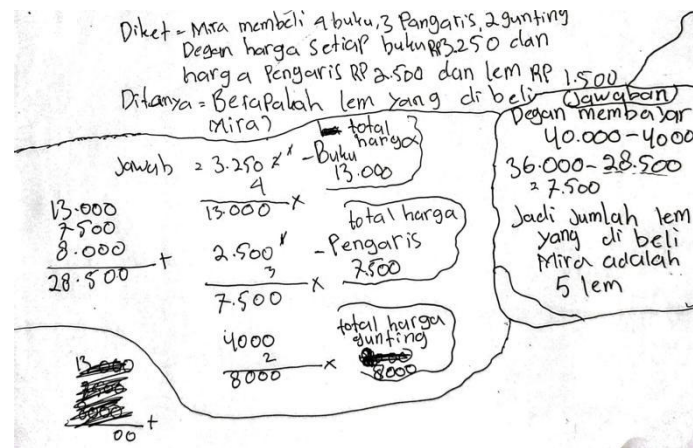 Diket = Mira membeli 4 buku, 3 Pangaris, 2 gunting
Degan harga Setiap buku RP3.250 dan
harga Pengaris RP 2.500 dan lem RP 1.500
Ditanya = Berapakah lem yang di beli
Mira?
Jawab = 3.250
4
13.000 x
- Buku
total
harga
13.000
2.500
3
7.500 x
- Pengaris
total harga
7.500
4000
2
8000 x
total harga
gunting
8000
13.000
7.500
8.000
28.500 +
00 +
Jawaban
Degan membayar
40.000-4000
36.000-28.500
= 7.500
Jadi Jumlah lem
yang di beli
Mira adalah
5 lem